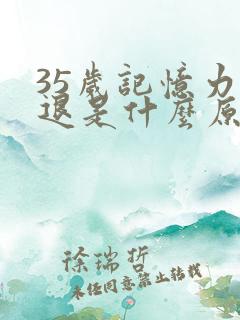 35歲記憶力
退是什麼原
徐瑞哲
未经同意禁止转载